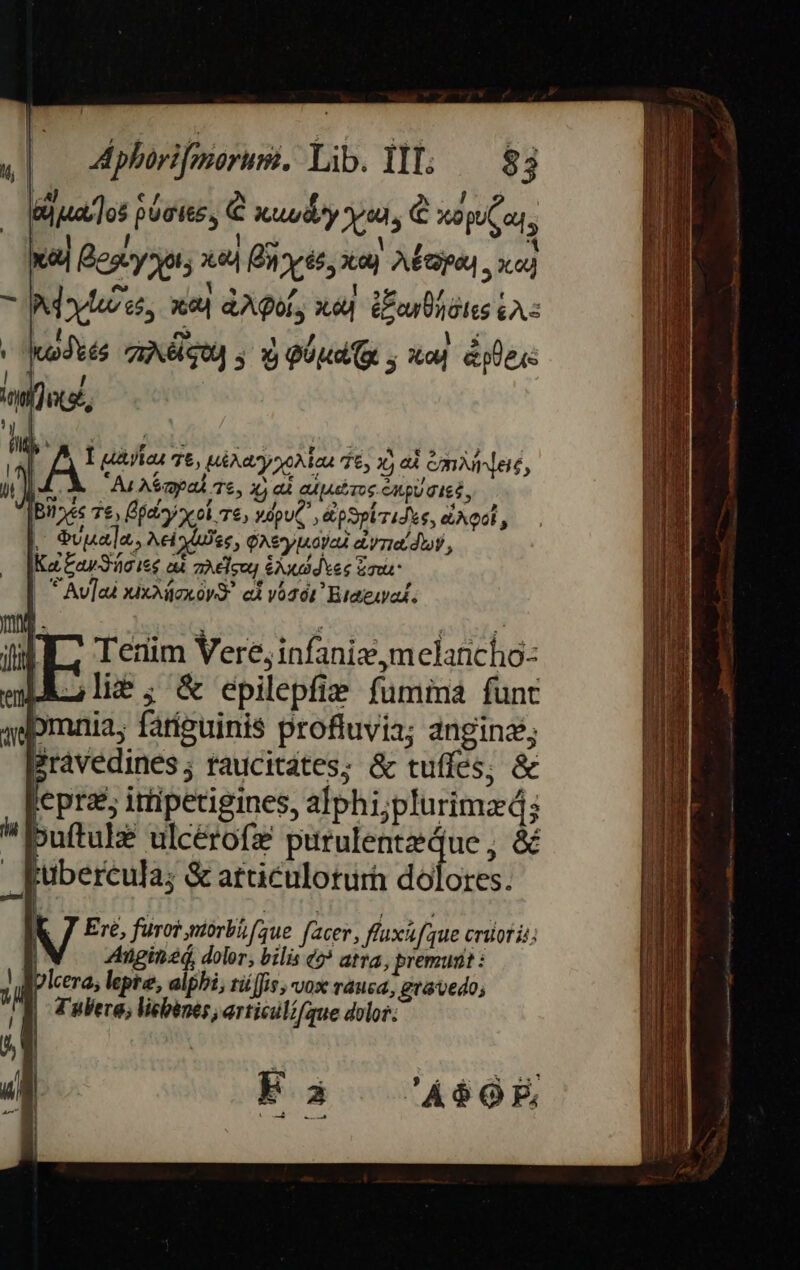 Aphorismorum. Lib. III. 83
αἵματος ῥύσιες, & κυνάγχαι, & κόρυζαι,
καὶ βράγχοι, καὶ βῆχες, καὶ λέπραι, καὶ
λειχῆνες, καὶ ἀλφοί, καὶ ἐξανθήσιες ἑλ-
κώδεες πλεῖσται, & φύματα, καὶ ἀρθρι-
Αἱ μανίαι τε, μελαγχολίαι τε, & αἱ ἐπιλήψεις,
Αἱ λέπραι τε, & αἱ αἵματος ἐκρύσιες,
Βῆχές τε, βράγχοί τε, κόρυζ', ἀρθρίτιδες, ἀλφοί,
Φύματα, λειχῆνες, φλεγμοναὶ
Καξανθήσιες αἱ πλεῖσται ἑλκώδεες
Αὗται κικλήσκονθ' αἱ νόσοι
ETenim Vere, insaniæ, melancho-
liæ, & epilepsiæ summa sunt
omnia, sanguinis profluvia, anginæ,
gravedines, raucitates, & tusses, &
lepræ, impetigines, alphi, plurimæq;
pustulæ ulcerosæ purulentæque, &
tubercula, & articulorum dolores.
VEre, furor, morbúsque sacer, fluxúsque cruoris,
Anginæq, dolor, bilis & atra, premunt:
Ulcera, lepræ, alphi, tussis, vox rauca, gravedo,
Tubera, lichenes, articulísque dolor.
F 2 ἈΦΟΡ.